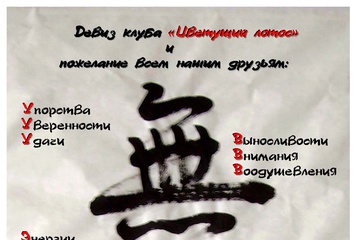 Девиз клуба «Цветущий лотос»
и
пожелание всем нашим друзьям:
Упорства
Уверенности
Удачи
Выносливости
Внимания
Воодушевления
無
Энергии